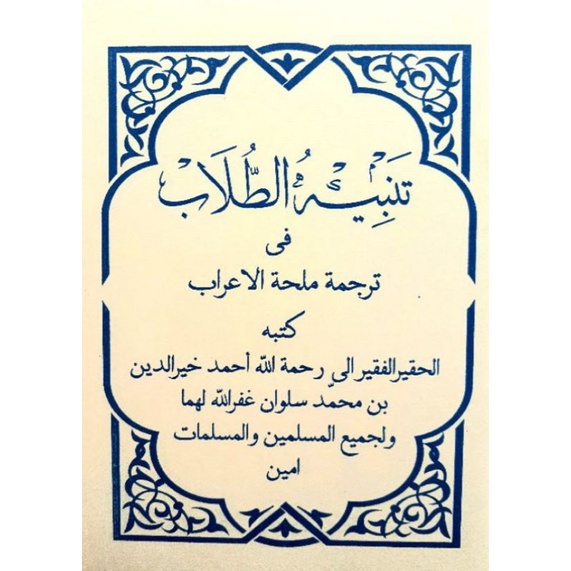 تَنْبِيْهُ الطُّلَابْ
فى
ترجمة ملحة الاعراب
كتبه
الحقيرالفقير الى رحمة الله أحمد خيرالدين
بن محمّد سلوان غفرالله لهما
ولجميع المسلمين والمسلمات
امين